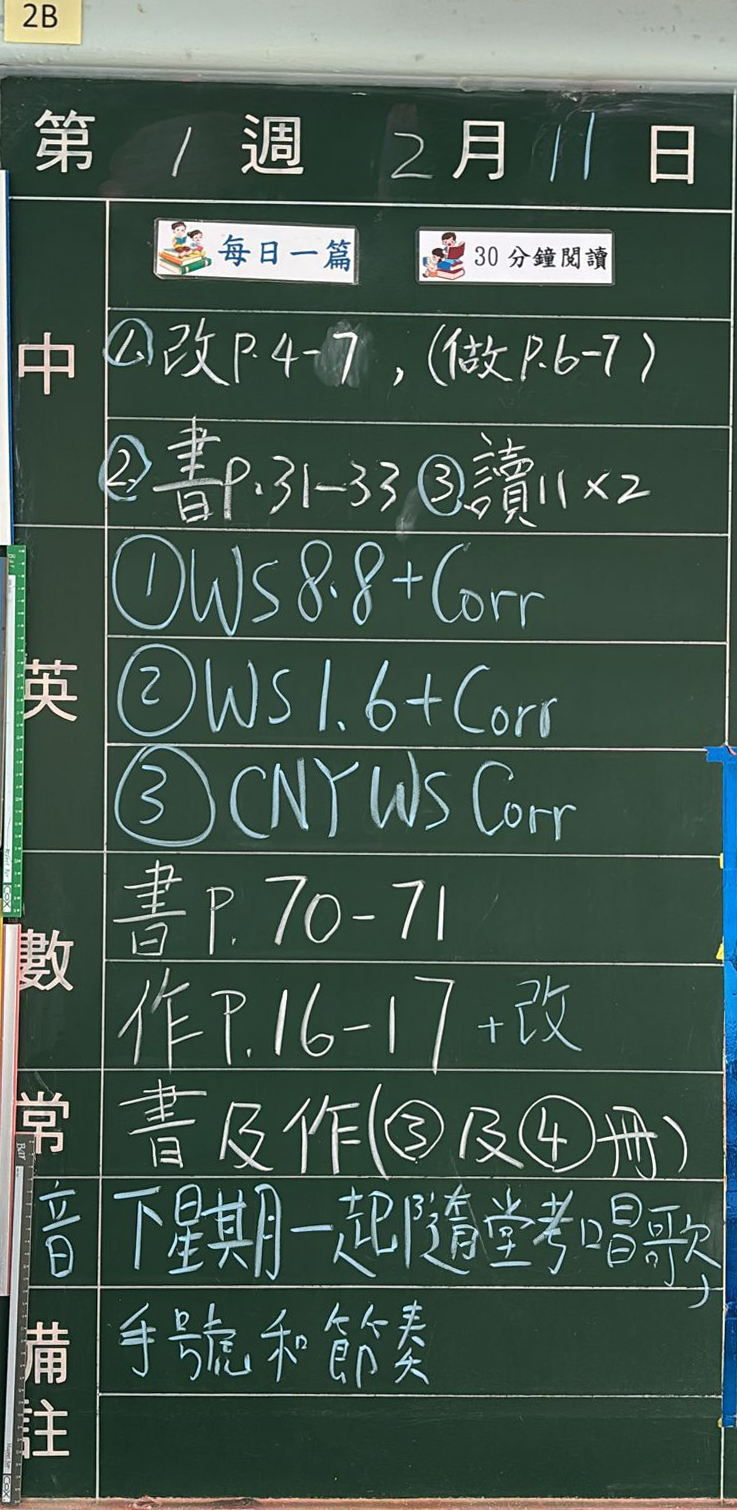 2B
第 1 週 2 月 11 日
每日一篇 30分鐘閱讀
中 ①改P.4-7，(做P.6-7)
②書P.31-33 ③讀11×2
英 ①WS 8.8+Corr
②WS 1.6+Corr
③CNY WS Corr
數 書P.70-71
作P.16-17 +改
常 書及作(③及④冊)
音 下星期一起隨堂考唱歌，
手號和節奏
備註